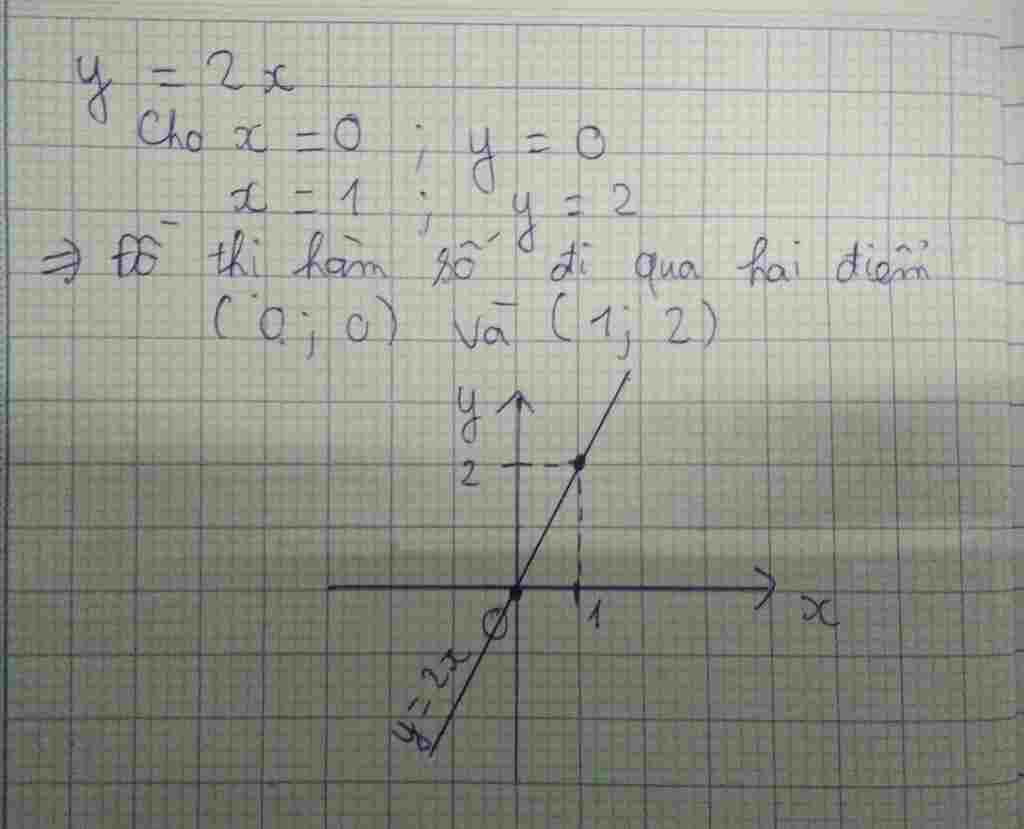 y = 2x
Cho x = 0 ; y = 0
x = 1 ; y = 2
⇒ Đồ thị hàm số đi qua hai điểm
(0; 0) và (1; 2)
y
2
O
1
x
y = 2x